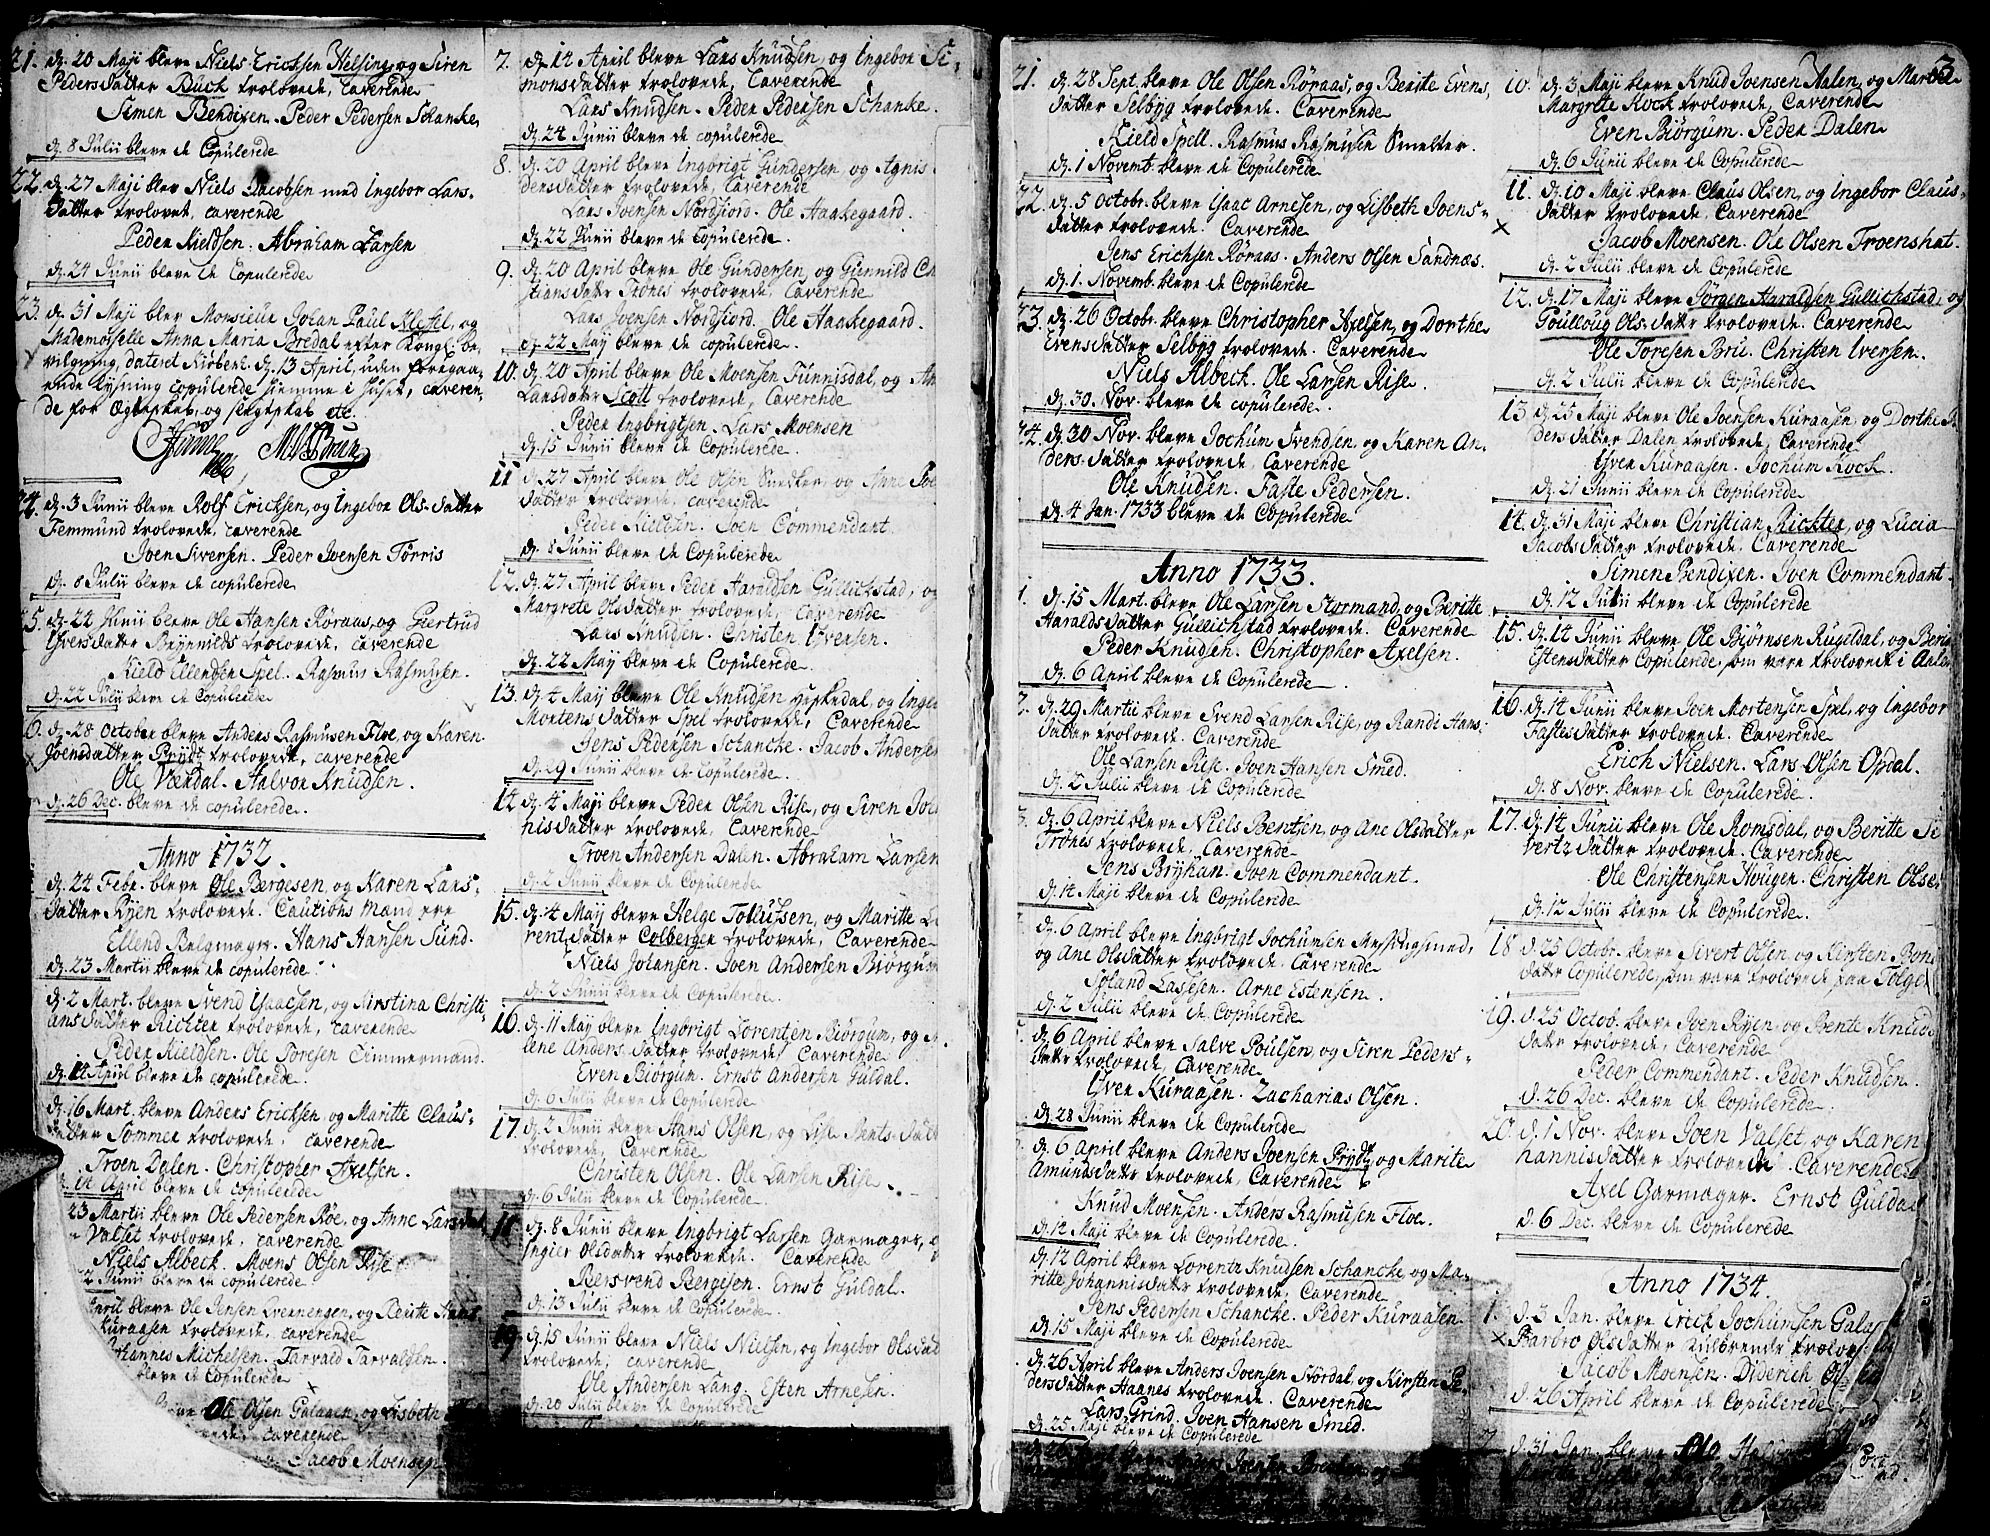 21. d. 20 Maji bleve Niels Erichsen Helsing, og Siren
Pedersdatter Buck trolovede, Caverende
Simen Bendixen. Peder Pedersen Schanke,
d. 8 Julii bleve de Copulerede
22. d. 27 Maji blev Niels Jacobsen med Ingebor Lars-
datter trolovet, caverende
Peder Kieldsen. Abraham Larsen
d. 24 Junii bleve de Copulerede
23. d. 31 Maji blev Monsieur Johan Paul og
Mademoselle Anna Maria Bredal efter Kongl. be-
vilgning, dateret Kiøbenh. d. 13 April, uden foregaa-
ende lysning copulerede hiemme i huset, caveren-
de for Ægteskab, og slegtskab etc.
24. d. 3 Junii bleve Rolf Ericksen, og Ingebor Ols-datter
Femmund trolovede, caverende
Joen Siversen. Peder Joensen Törris
d. 8 Julii bleve de copulerede
25. d. 22 Junii bleve Ole Hansen Röraas, og Geertrud
Iversdatter Brynilds trolovede, caverende
Kield Ellendsen Spel. Rasmus Rasmusen.
d. 22 Julii bleve de copulerede
26. d. 28 October bleve Anders Rasmusen Floe, og Karen
Joensdatter Prydt trolovede, caverende
Ole Værdal. Halvor Knudsen.
d. 26 Dec. bleve de copulerede.
Anno 1732.
d. 24 Febr. bleve Ole Bergesen, og Karen Lars-
datter Ryen trolovede. Cautions Mænd ere
Ellend Belgmager. Hans Hansen Sund.
d. 23 Martii bleve de copulerede.
d. 2 Mart. bleve Svend Isaacsen, og Kirstina Christi-
ansdatter Richter trolovede, caverende
Peder Kieldsen. Ole Toresen Timmermand.
d. 14 April bleve de copulerede.
d. 16 Mart. bleve Anders Ericksen, og Maritte Claus-
datter Sommer trolovede, caverende
Troen Dalen. Christopher Axelsen.
d. 14 April bleve de copulerede
23 Martii bleve Ole Pedersen Roe, og Anne Larsdat
Valset trolovede, caverende
Niels Albeck. Moens Olsen Rise
2 Junii bleve de copulerede
April bleve Ole Jensen og Hans
Kuraasen trolovede, caverende
Johannes Michelsen. Tarvald Tarvaldsen.
bleve de Copulerede
Ole Olsen Galaaen, og Lisbeth
caverende
Jacob Moensen
7. d. 14 April bleve Lars Knudsen, og Ingebor Si-
monsdatter trolovede, Caverende
Lars Knudsen. Peder Pedersen Schanke.
d. 24 Junii bleve de copulerede
8. d. 20 April bleve Ingbrigt Gundersen og Agnis
densdatter trolovede, Caverende
Lars Joensen Nordfiord. Ole Aaskegaard.
d. 22 Junii bleve de copulerede.
9. d. 20 April bleve Ole Gundersen, og Gunnild Ch
stiansdatter Trönes trolovede, Caverende
Lars Joensen Nordfiord. Ole Aaskegaard.
d. 22 May bleve de copulerede.
10. d. 20 April bleve Ole Moensen Funnisdal, og
Larsdatter Scott trolovede, Caverende
Peder Ingbrigtsen. Lars Moensen
d. 15 Junii bleve de Copulerede.
11 d. 27 April bleve Ole Olsen Snedker, og Anne Joe
datter trolovede, caverende
Peder Kieldsen. Joen Commendant.
d. 8 Junii bleve de Copulerede
12. d. 27 April bleve Peder Haraldsen Gullichstad, og
Margrete Olsdatter trolovede, caverende
Lars Knudsen. Christen Iversen.
d. 22 May bleve de Copulerede.
13. d. 4 May bleve Ole Knudsen og Inge
Mortensdatter Spel trolovede, Caverende
Jens Pedersen Schancke. Jacob Andersen
d. 29 Junii bleve de Copulerede.
14 d. 4 Maji bleve Peder Olsen Rise, og Siren Joha
nisdatter trolovede, Caverende
Troen Andersen Dalen. Abraham Larsen
d. 2 Junii bleve de Copulerede
15. d. 4 May bleve Helge Tollufsen, og Maritte La
rentzdatter Colberger trolovede, Caverende
Niels Johansen. Joen Andersen Biörgum
d. 2 Junii bleve de Copulerede.
16. d. 11 May bleve Ingbrigt Lorentzen Biörgum, og
lene Andersdatter trolovede, Caverende
Even Biörgum. Ernst Andersen Guldal.
d. 6 Julii bleve de Copulerede
17. d. 2 Junii bleve Hans Olsen, og Lise Bents-datt
trolovede, Caverende
Christen Olsen. Ole Larsen Rise.
d. 6 Julii bleve de Copulerede.
18 d. 8 Junii bleve Ingbrigt Larsen Garmager,
Ingier Olsdatter trolovede. Caverende
Bersvend Bergesen. Ernst Guldal.
d. 13 Julii bleve de Copulerede
19 d. 15 Junii bleve Niels Nielsen, og Ingebor Olsdat
trolovede, caverende
Ole Andersen Lang. Esten Arnesen.
d. 20 Julii bleve de Copulerede
3
21. d. 28 Sept. bleve Ole Olsen Röraas, og Beritte Evens-
datter Selbyg trolovede. Caverende
Kield Spell. Rasmus Rasmusen Smelter.
d. 1 Novemb. bleve de Copulerede
22. d. 5 Octobr. bleve Isaac Arnesen, og Lisbeth Joens-
datter trolovede. Caverende
Jens Erichsen Röraas. Anders Olsen Sandnæs.
d. 1. Novemb. bleve de Copulerede
23. d. 26 Octobr. bleve Christopher Axelsen, og Dorthe
Evensdatter Selbyg trolovede. Caverende
Niels Albeck. Ole Larsen Rise.
d. 30. Nov. bleve de copulerede.
24. d. 30 Nov. bleve Jochum Svendsen, og Karen An-
dersdatter trolovede, Caverende
Ole Knudsen. Faste Pedersen.
d. 4 Jan. 1733 bleve de Copulerede
Anno 1733.
1. d. 15 Mart. bleve Ole Larsen Stormand, og Beritte
Haraldsdatter Gullichstad trolovede. Caverende
Peder Knudsen. Christopher Axelsen.
d. 6 April bleve de Copulerede
2. d. 29 Martii bleve Svend Larsen Rise, og Randi Hans-
datter trolovede. Caverende
Ole Larsen Rise. Joen Hansen Smed.
d. 2 Julii bleve de Copulerede
d. 6 April bleve Niels Bentsen, og Ane Olsdatter
Trönes trolovede, Caverende
Jens Bryhan. Joen Commendant.
d. 14 Maji bleve de Copulerede.
d. 6 April bleve Ingbrigt Jochumsen Messingsmed,
og Ane Olsdatter trolovede. Caverende
Lassesen. Arne Estensen.
d. 2 Julii bleve de Copulerede
d. 6 April bleve Salve Poulsen, og Siren Peders-
datter trolovede, Caverende
Iver Kuraasen. Zacharias Olsen.
d. 28 Junii bleve de Copulerede
d. 6 April bleve Anders Joensen Prydt, og Marite
Amundsdatter trolovede, Caverende
Knud Moensen. Anders Rasmusen Floe.
d. 12 Maji bleve de Copulerede.
d. 12 April bleve Lorentz Knudsen Schancke, og Ma-
ritte Johannisdatter trolovede, Caverende
Jens Pedersen Schancke. Peder Kuraasen
d. 15 Maji bleve de Copulerede
d. 26 April bleve Anders Joensen Nördal, og Kirsten Pe-
dersdatter Haanes trolovede. Caverende
Lars Grind. Joen Hansen Smed.
d. 25 Maji bleve de Copulerede
10. d. 3 Maji bleve Knud Joensen Aalen, og Marthe
Margrete Kock trolovede, Caverende
Even Biörgum. Peder Dalen
d. 6 Junii bleve de Copulerede
11. d. 10 Maji bleve Claus Olsen, og Ingebor Claus-
datter trolovede, Caverende
Jacob Moensen. Ole Olsen Troenshat.
d. 2 Julii bleve de Copulerede
12. d. 17 Maji bleve Jörgen Haraldsen Gullichstad, og
Goulloug Ols-datter trolovede. Caverende
Ole Toresen Bru. Christen Iversen.
d. 2 Julii bleve de Copulerede
13 d. 25 Maji bleve Ole Joensen Kuraasen, og Dorthe P
dersdatter Dalen trolovede, Caverende
Iver Kuraasen. Jochum Kock.
d. 21 Junii bleve de Copulerede
14. d. 31 Maji bleve Christian Richter, og Lucia
Jacobsdatter trolovede. Caverende
Simen Bendixen. Joen Commendant.
d. 12 Julii bleve de Copulerede
15. d. 14 Junii bleve Ole Biörnsen Rugldal, og Berit
Estensdatter Copulerede, som vare trolovede i Aalen
16. d. 14 Junii bleve Joen Mortensen Spel, og Ingebor
Fastesdatter trolovede. Caverende
Erich Nielsen. Lars Olsen Opdal.
d. 8 Nov. bleve de Copulerede.
17. d. 14 Junii bleve Ole Romsdal, og Beritte Si
vertzdatter trolovede. Caverende
Ole Christensen Hougen. Christen Olse
d. 12 Julii bleve de Copulerede.
18 d. 25 Octobr. bleve Sivert Olsen, og Kirsten
datter Copulerede, som vare trolovede paa Tolge
19. d. 25 Octob. bleve Joen Ryen, og Bente Knuds
datter trolovede, Caverende
Peder Commendant. Peder Knudsen.
d. 26 Dec. bleve de Copulerede.
20. d. 1 Nov. bleve Joen Valset og Karen
hannisdatter trolovede. Caverende
Axel Garmager. Ernst Guldal
d. 6 Dec. bleve de Copulerede
Anno 1734.
1. d. 3 Jan. bleve Erick Jochumsen Gala
Barbro Olsdatter trolov
Jacob Moensen. Diderich
d. 26 April bleve de Copulerede
2. d. 31 Jan. bleve Ole